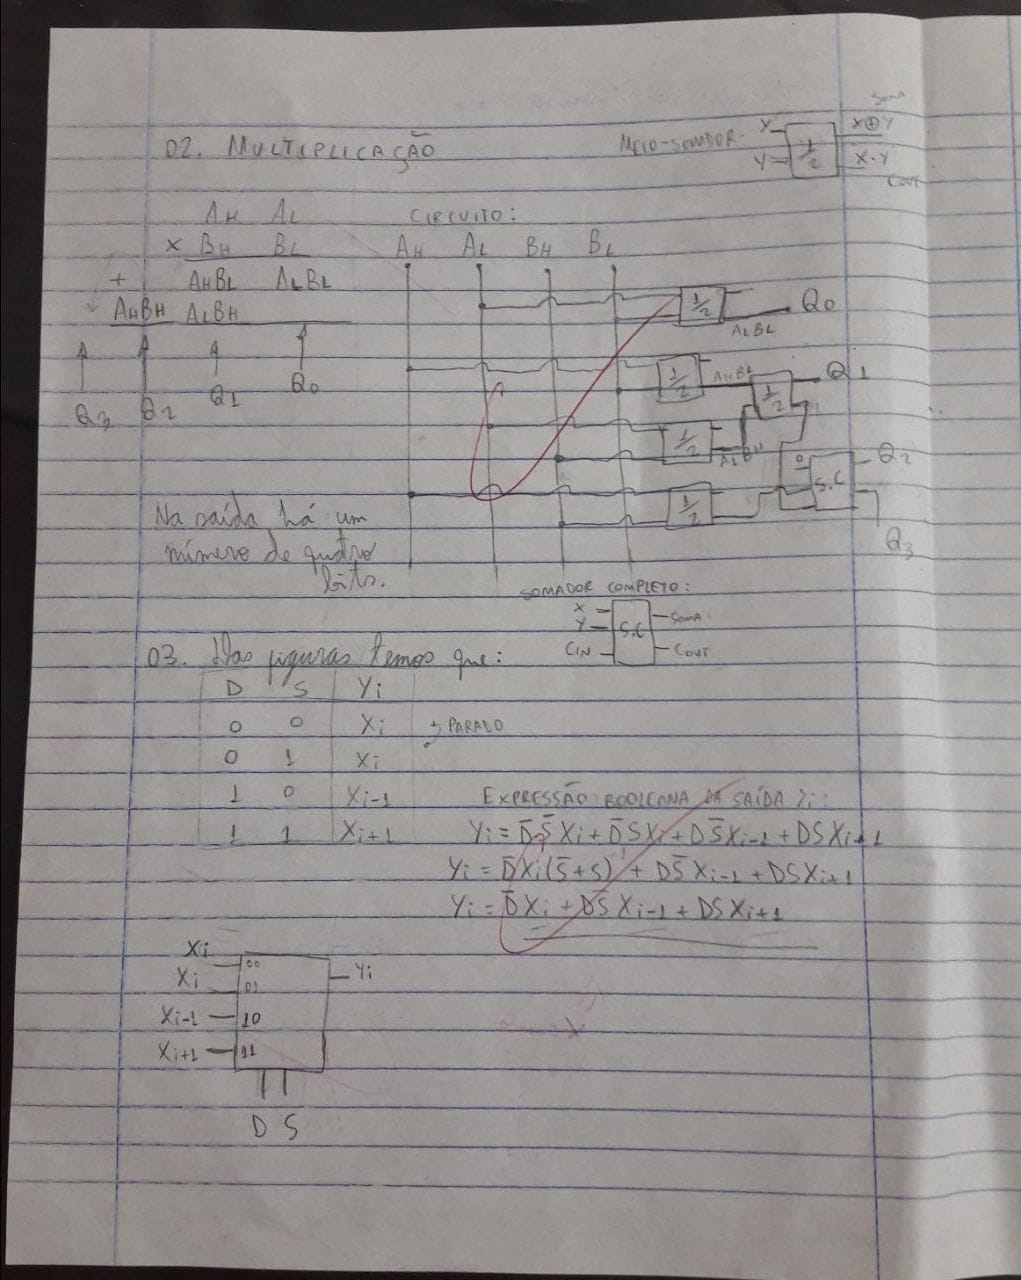 Soma
02. MULTIPLICAÇÃO
MEIO-SOMADOR-
X
Y
1/2
X⊕Y
X.Y
COUT
AH AL
x BH BL
+ AHBL ALBL
AHBH ALBH
Q3 Q2 Q1 Q0
CIRCUITO:
AH AL BH BL
1/2 Q0
ALBL
1/2 AHBL 1/2 Q1
1/2 ALBH
0 S.C Q2
1/2
Q3
Na saída há um
número de quatro
bits.
SOMADOR COMPLETO:
X
Y
CIN
S.C
SOMA
COUT
03. Das figuras temos que:
D S Yi
0 0 Xi PARADO
0 1 Xi
1 0 Xi-1
1 1 Xi+1
EXPRESSÃO BOOLEANA DA SAÍDA Yi:
Yi = D̄S̄Xi + D̄SXi + DS̄Xi-1 + DSXi+1
Yi = D̄Xi(S̄+S)¹ + DS̄Xi-1 + DSXi+1
Yi = D̄Xi + DS̄Xi-1 + DSXi+1
Xi 00 Yi
Xi 01
Xi-1 10
Xi+1 11
D S